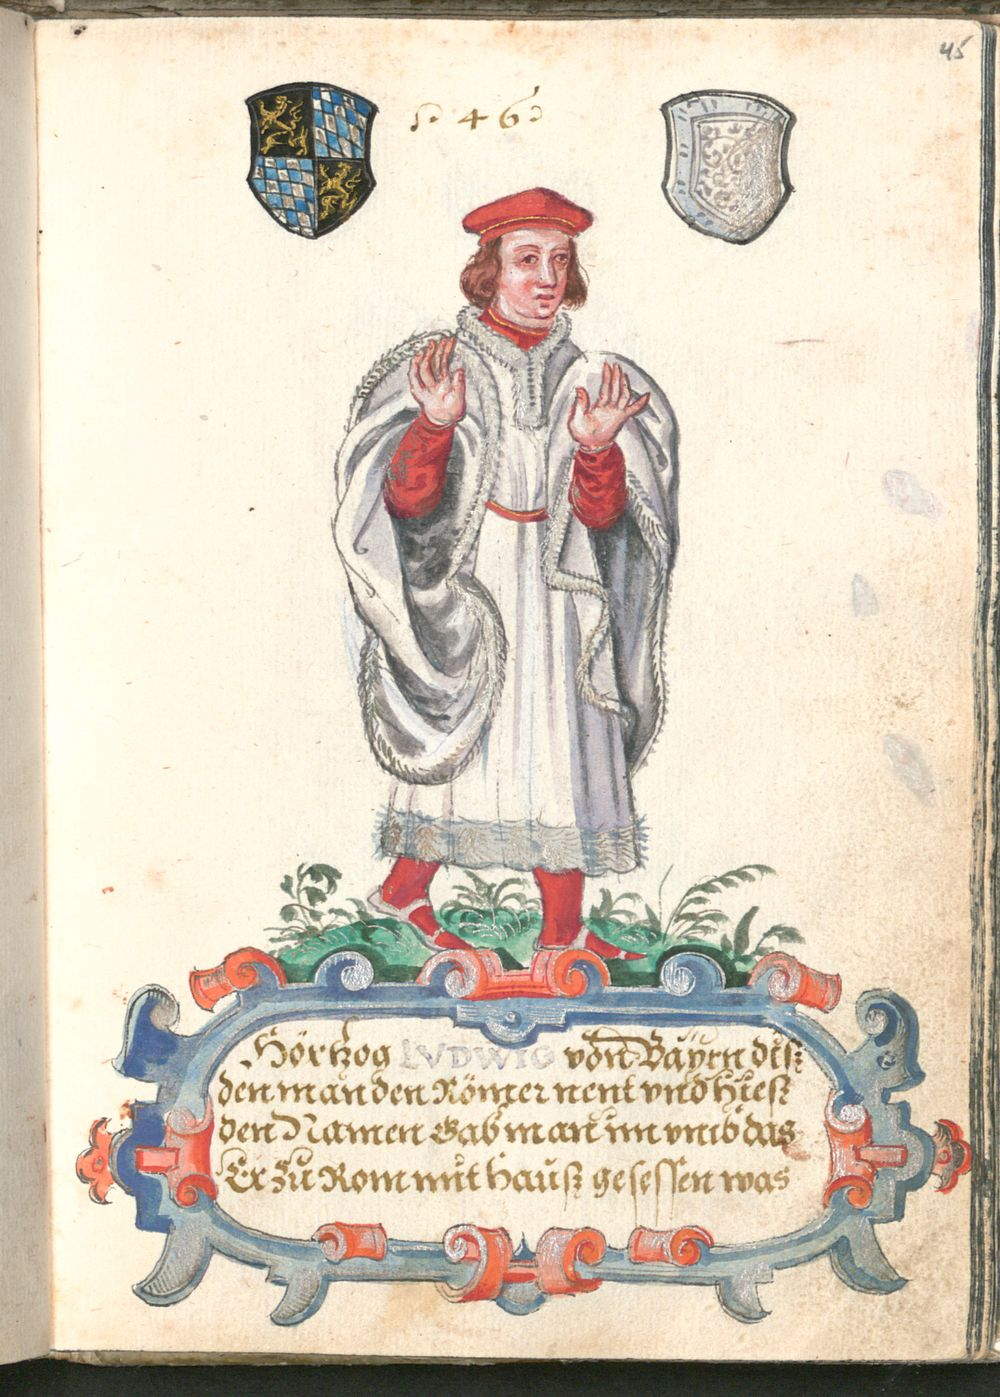 45
· 46 ·
Hörtzog LVDWIG von Bayrn diß
den man den Römer nent vnd hieß
den Namen Gab man im vmb das
Er zu Rom mit hauß gesessen was